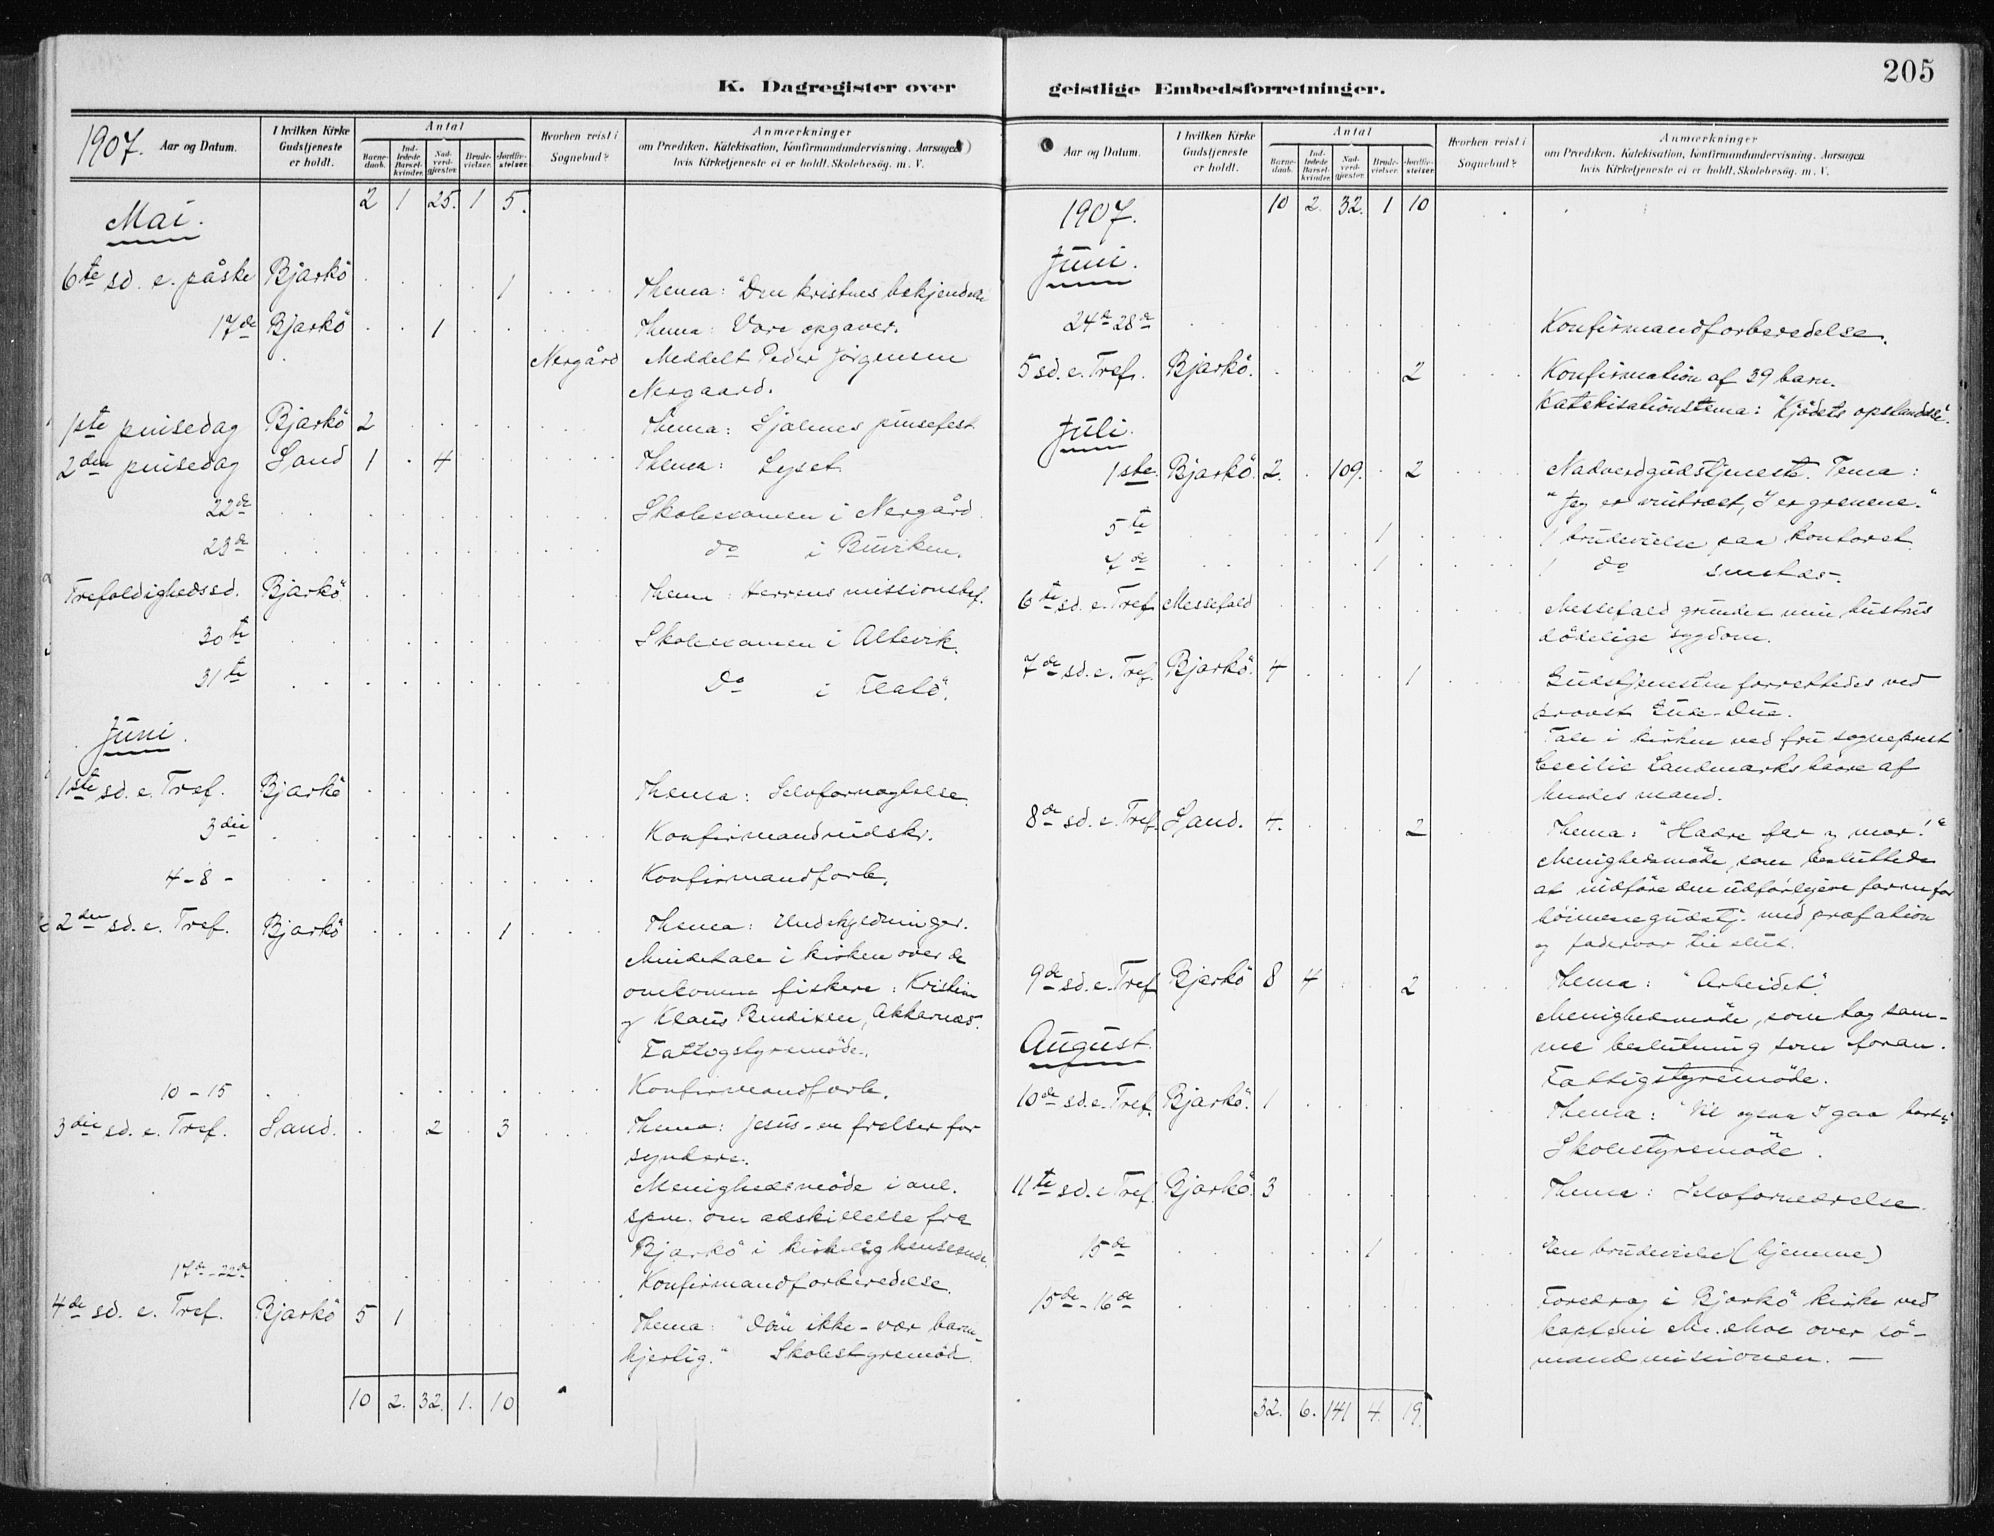 K. Dagregister over
1907. Aar og Datum. I hvilken Kirke Gudstjeneste er holdt. Antal Barnedaab. Indledede Barselkvinder. Nadverdgjæster. Brudevielser. Jordfæstelser. Hvorhen reist i Sognebud? Anmærkninger om Prædiken, Katekisation, Konfirmandundervisning, Aarsagen hvis Kirketjeneste ei er holdt, Skolebesøg, m. V.
2 1 25. 1 5.
Mai.
6te sd. e. påske Bjarkö 1 Thema: "Den kristnes bekjendelse
17de Bjarkö 1 Thema: Vore opgaver.
Nergård Meddelt Peder Jörgensen
Nergaard.
1ste pinsedag Bjarkö 2 Thema: Sjælenes pinsefest
2den pinsedag Sand 1 4 Thema: Lyset
22de Skoleexamen i Nergård
23de do i Buviken.
Trefoldighedssd. Bjarkö. Thema: Herrens missionsbef.
30te Skoleexamen i Altevik.
31te Do i Flatö.
Juni.
1ste sd. e. Tref. Bjarkö Thema: Selvfornegtelse.
3die Konfirmandudskr.
4-8- Konfirmandforb.
2den sd. e. Tref. Bjarkö 1 Thema: Undskyldninger.
Mindetale i kirken over de
omkomne fiskere: Kristian
og Klaus Bendixen, Akkarnæs.
Fattigstyremöde.
10-15 Konfirmandforb.
3die sd. e. Tref. Sand. 2 3 Thema: Jesus - en frelser for
syndere.
Menighedsmöde i anl.
spm. om adskillelse fra
Bjarkö i kirkelig henseende.
17de-22de Konfirmandforberedelse.
4de sd. e. Tref. Bjarkö 5 1 Thema: "Döm ikke - vær barm-
hjertig." Skolestyremöde.
10 2. 32. 1. 10
205
geistlige Embedsforretninger.
Aar og Datum. I hvilken Kirke Gudstjeneste er holdt. Antal Barnedaab. Indledede Barselkvinder. Nadverdgjæster. Brudevielser. Jordfæstelser. Hvorhen reist i Sognebud? Anmærkninger om Prædiken, Katekisation, Konfirmandundervisning, Aarsagen hvis Kirketjeneste ei er holdt, Skolebesøg, m. V.
1907. 10 2. 32. 1 10
Juni.
24de 28de Konfirmandforberedelse.
5 sd. e. Tref. Bjarkö. 2 Konfirmation af 39 barn.
Katekisationstema: "Kjödets opstandelse."
Juli.
1ste Bjarkö. 2. 109. 2 Nadverdgudstjeneste. Tema:
"Jeg er vintræet, I er grenene."
5te 1 1 brudevielse paa kontoret
7de 1 1 do smstds.
6te sd. e. Tref. Messefald Messefald grundet min hustrus
dödelige sygdom.
7de sd. e. Tref. Bjarkö. 4 1 Gudstjenesten forrettedes ved
provst Gude-Due.
Tale i kirken ved fru sogneprest
Cecilie Landmarks baare af
hendes mand.
8de sd. e. Tref. Sand. 4. 2 Thema: "Hædre far og mor!"
Menighedsmöde, som besluttede
at indföre den udförligere form for
höimessegudstj. med præfation
og fadervor til slut.
9de sd. e. Tref. Bjarkö 8 4 2 Thema: "Arbeidet".
Menighedsmöde, som tog sam-
me beslutning som foran.
Fattigstyremöde.
August.
10de sd. e. Tref. Bjarkö. 1 Thema: "Vil ogsaa I gaa bort?"
Skolestyremöde.
11te sd. e Tref. Bjarkö. 3 Thema: Selvfornedrelse.
15de 1 En brudevielse (hjemme)
15de-16de Foredrag i Bjarkö kirke ved
kaptein Moe over sö-
mandsmissionen. —
32. 6. 141 4. 19.